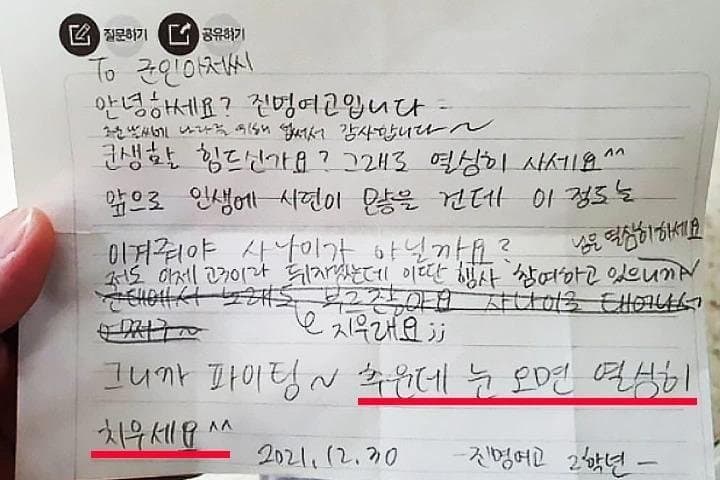 질문하기 공유하기
To 군인아저씨
안녕하세요? 진명여고입니다
추운 날씨에 나라를 위해 힘써서 감사합니다~
군생활 힘드신가요? 그래도 열심히 사세요^^
앞으로 인생에 시련이 많을 건데 이 정도는
이겨줘야 사나이가 아닐까요?
눈은 열심히 하세요
저도 이제 고3이라 뒤지겠는데 이딴 행사 참여하고 있으니까~
군대에서 노래도 부르잖아요 사나이로 태어나서
어쩌구~
지우래요;;
그니까 파이팅~ 추운데 눈 오면 열심히
치우세요^^
2021.12.30 -진명여고 2학년-